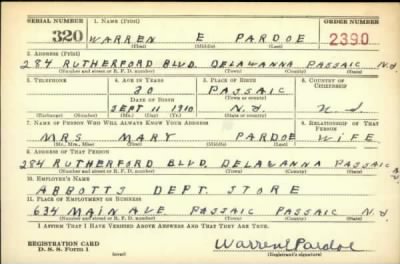 SERIAL NUMBER 1. NAME (Print) ORDER NUMBER
320 WARREN E PARDOE 2390
(First) (Middle) (Last)
2. ADDRESS (Print)
284 RUTHERFORD BLVD. DELAWANNA PASSAIC N.J.
(Number and street or R. F. D. number) (Town) (County) (State)
3. TELEPHONE 4. AGE IN YEARS 5. PLACE OF BIRTH 6. COUNTRY OF CITIZENSHIP
30 PASSAIC
DATE OF BIRTH (Town or county)
SEPT 11 1910 N.J.
(Exchange) (Number) (Mo.) (Day) (Yr.) (State or country)
7. NAME OF PERSON WHO WILL ALWAYS KNOW YOUR ADDRESS 8. RELATIONSHIP OF THAT PERSON
MRS MARY PARDOE WIFE
(Mr., Mrs., Miss) (First) (Middle) (Last)
9. ADDRESS OF THAT PERSON
284 RUTHERFORD BLVD. DELAWANNA PASSAIC
(Number and street or R. F. D. number) (Town) (County) (State)
10. EMPLOYER'S NAME
ABBOTTS DEPT. STORE
11. PLACE OF EMPLOYMENT OR BUSINESS
634 MAIN AVE PASSAIC PASSAIC N.J.
(Number and street or R. F. D. number) (Town) (County) (State)
I AFFIRM THAT I HAVE VERIFIED ABOVE ANSWERS AND THAT THEY ARE TRUE.
REGISTRATION CARD Warren E Pardoe
D. S. S. Form 1 (over) (Registrant's signature)